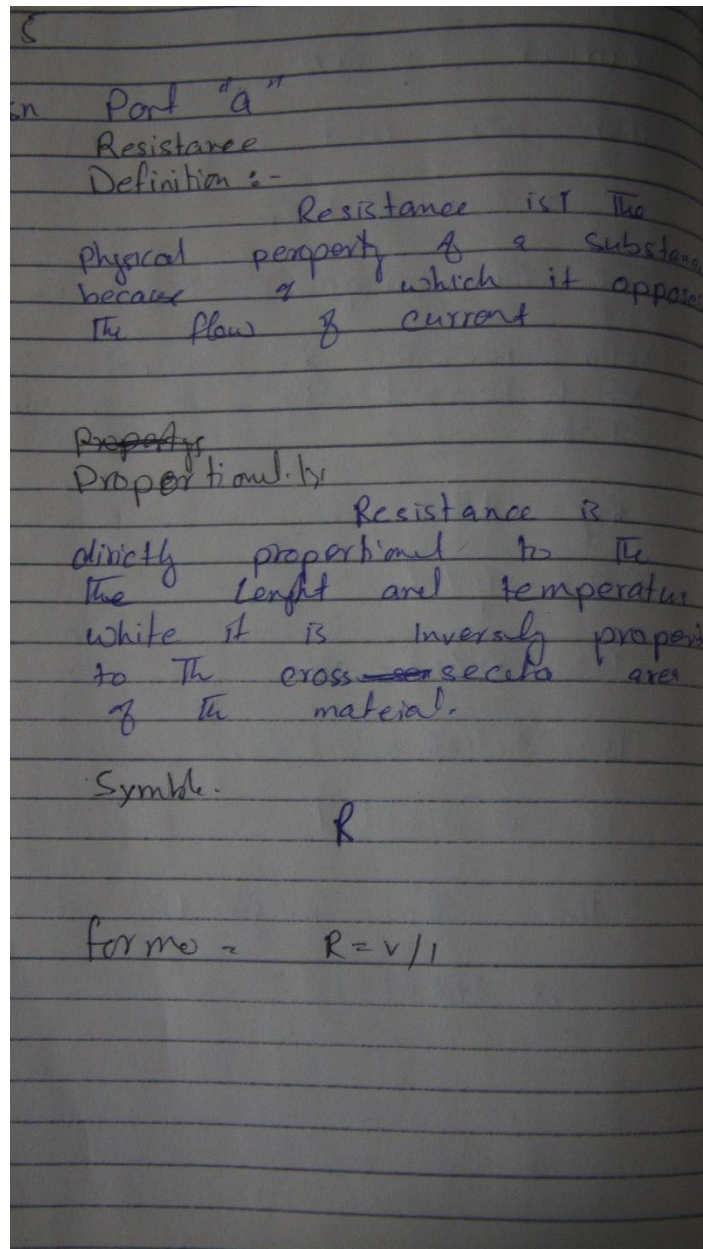 Part "a"
Resistance
Definition :-
Resistance is the
physical peroperty of a substance
because of which it oppose
The flow of current
Proportionality
Resistance is
dirictly proportional to the
The lenght and temperatur
while it is Inversly proper
to The cross secto area
of the mateial.
Symble.
R
R = v/I